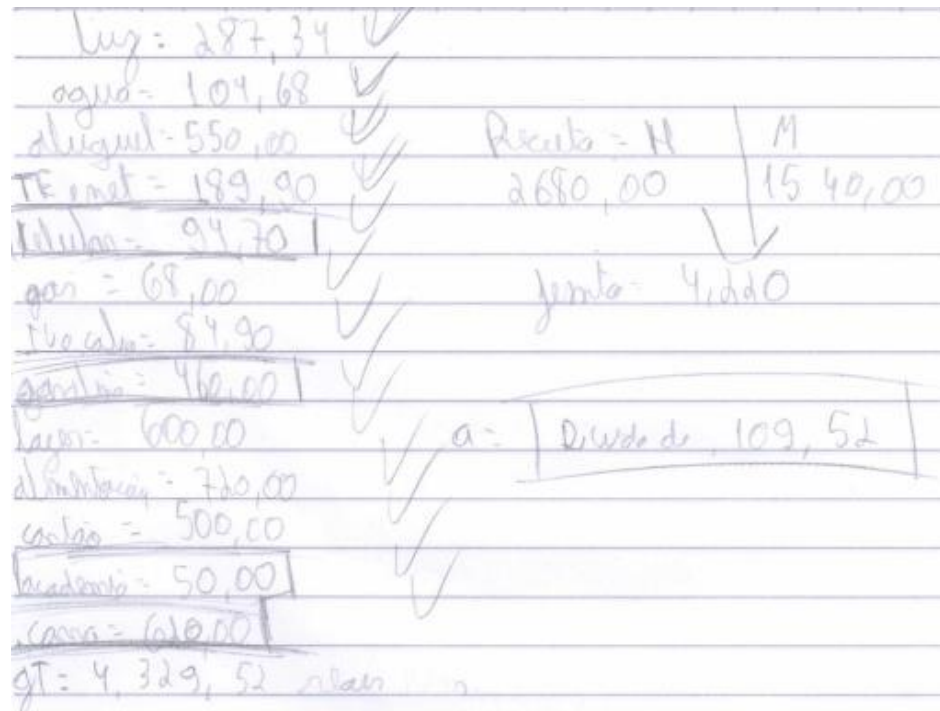 luz: 287,34
agua = 104,68
aluguel = 550,00
TE enet = 189,90
celular = 94,70
gas = 68,00
84,90
gasolina = 460,00
lazer = 600,00
alimentação = 720,00
cartão = 500,00
academia = 50,00
carra = 620,00
gT = 4,329,52 reais
Receita = H M
2680,00 1540,00
Jemto = 4,220
a = Divida de 109,52